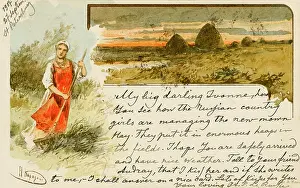 My big darling Yvonne, how
You see how the Russian country
girls are managing the new-mown
hay. They put it in enormous heaps in
the fields. Thaps You are safely arrived
and have nice weather. Tell to your friend
Audray, that I kiss her and if she writes
to me, I shall answer on a nice card. Let of kisses for You
Your loving